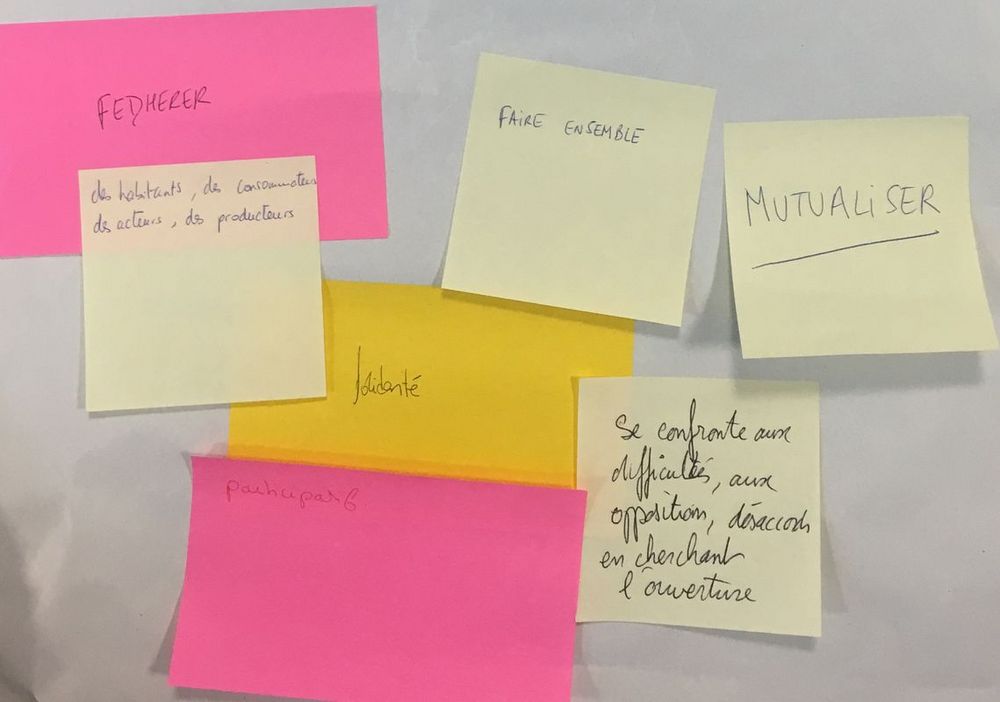 FEDHERER
des habitants, des consommateurs
des acteurs, des producteurs
FAIRE ENSEMBLE
MUTUALISER
Solidarité
participatif
Se confronte aux
difficultés, aux
opposition, désaccords
en cherchant
l'ouverture